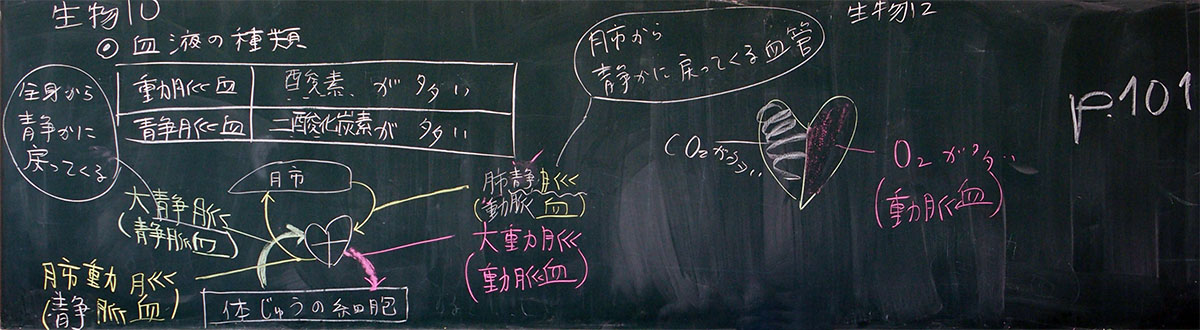 生物10
◎血液の種類
動脈血 酸素が多い
静脈血 二酸化炭素が多い
全身から
静かに
戻ってくる
肺
大静脈
(静脈血)
肺動脈
(静脈血)
体じゅうの細胞
肺静脈
(動脈血)
大動脈
(動脈血)
肺から
静かに戻ってくる血管
生物12
CO₂が多い
O₂が多い
(動脈血)
p.101